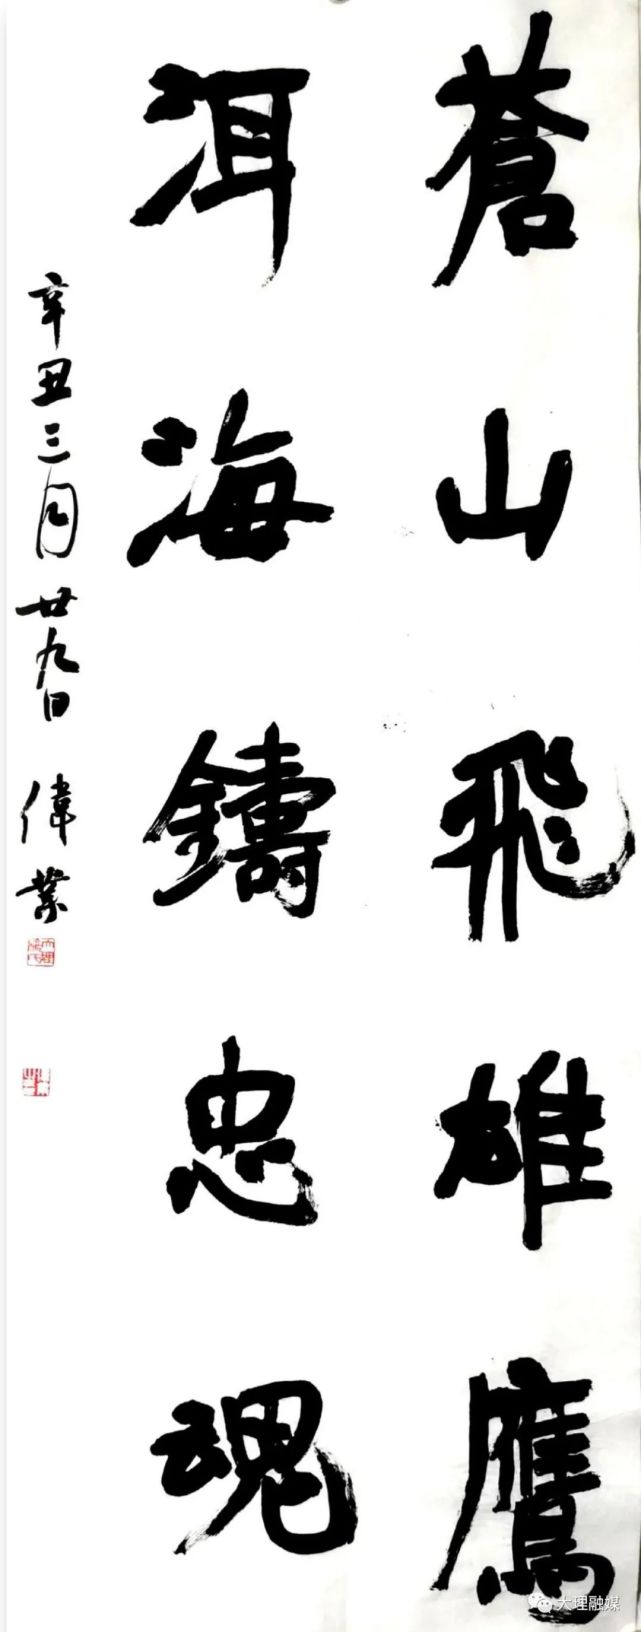 蒼山飛雄鷹
洱海鑄忠魂
辛丑三月廿九日 偉業
大理融媒